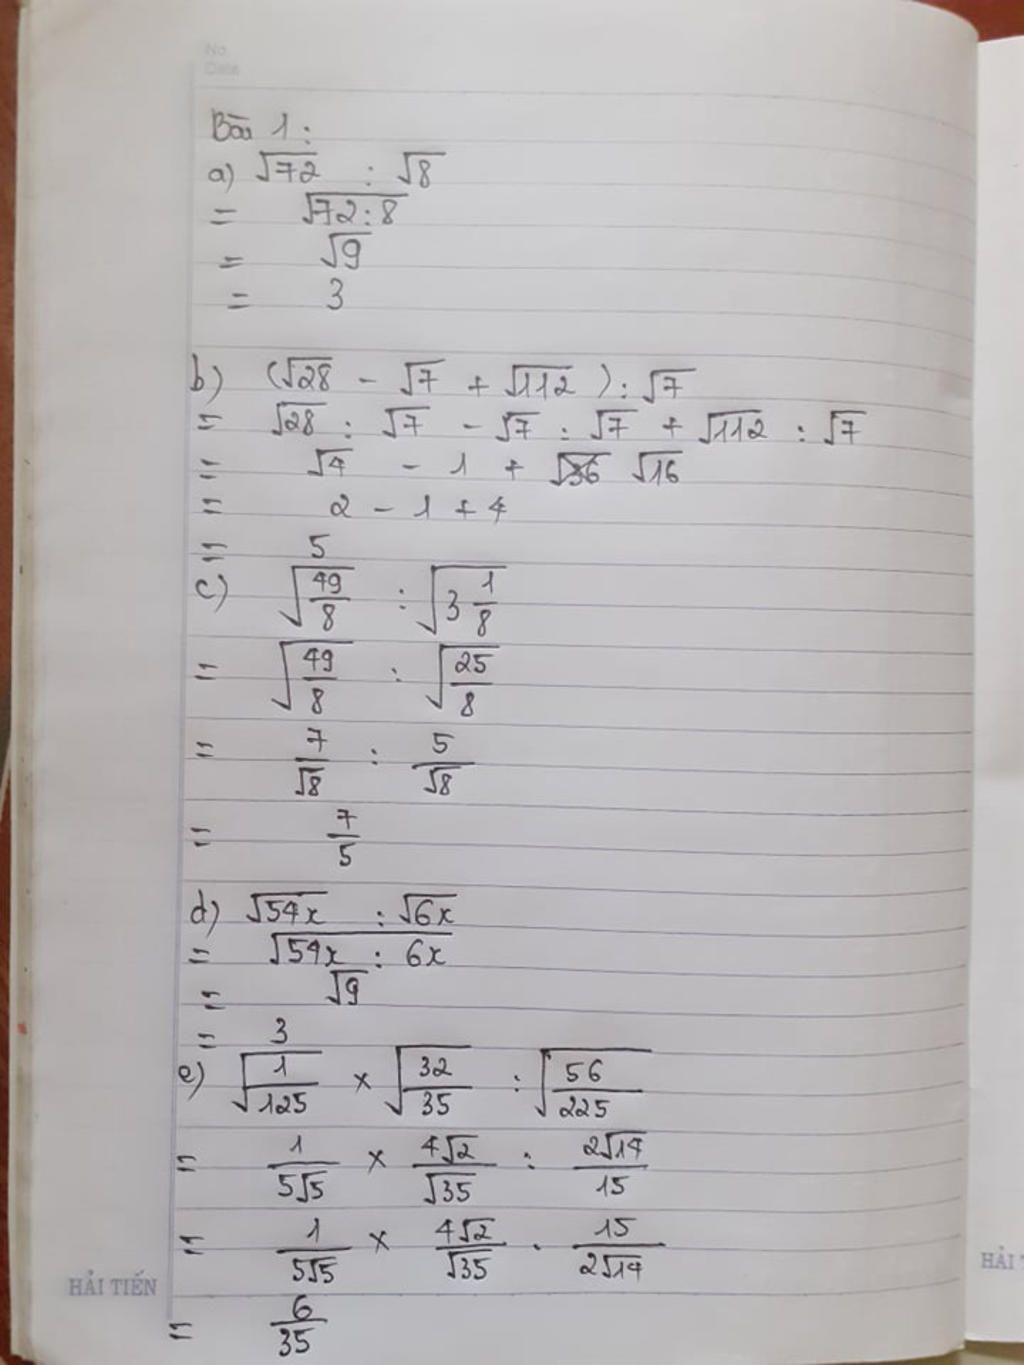 No.
Date
Bài 1:
a) √72 : √8
= √72:8
= √9
= 3
b) (√28 - √7 + √112) : √7
= √28 : √7 - √7 : √7 + √112 : √7
= √4 - 1 + √36 √16
= 2 - 1 + 4
= 5
c) √49/8 : √3 1/8
= √49/8 : √25/8
= 7/√8 : 5/√8
= 7/5
d) √54x : √6x
= √54x : 6x
= √9
= 3
e) √1/125 × √32/35 : √56/225
= 1/5√5 × 4√2/√35 : 2√14/15
= 1/5√5 × 4√2/√35 . 15/2√14
= 6/35
HẢI TIẾN
HẢI